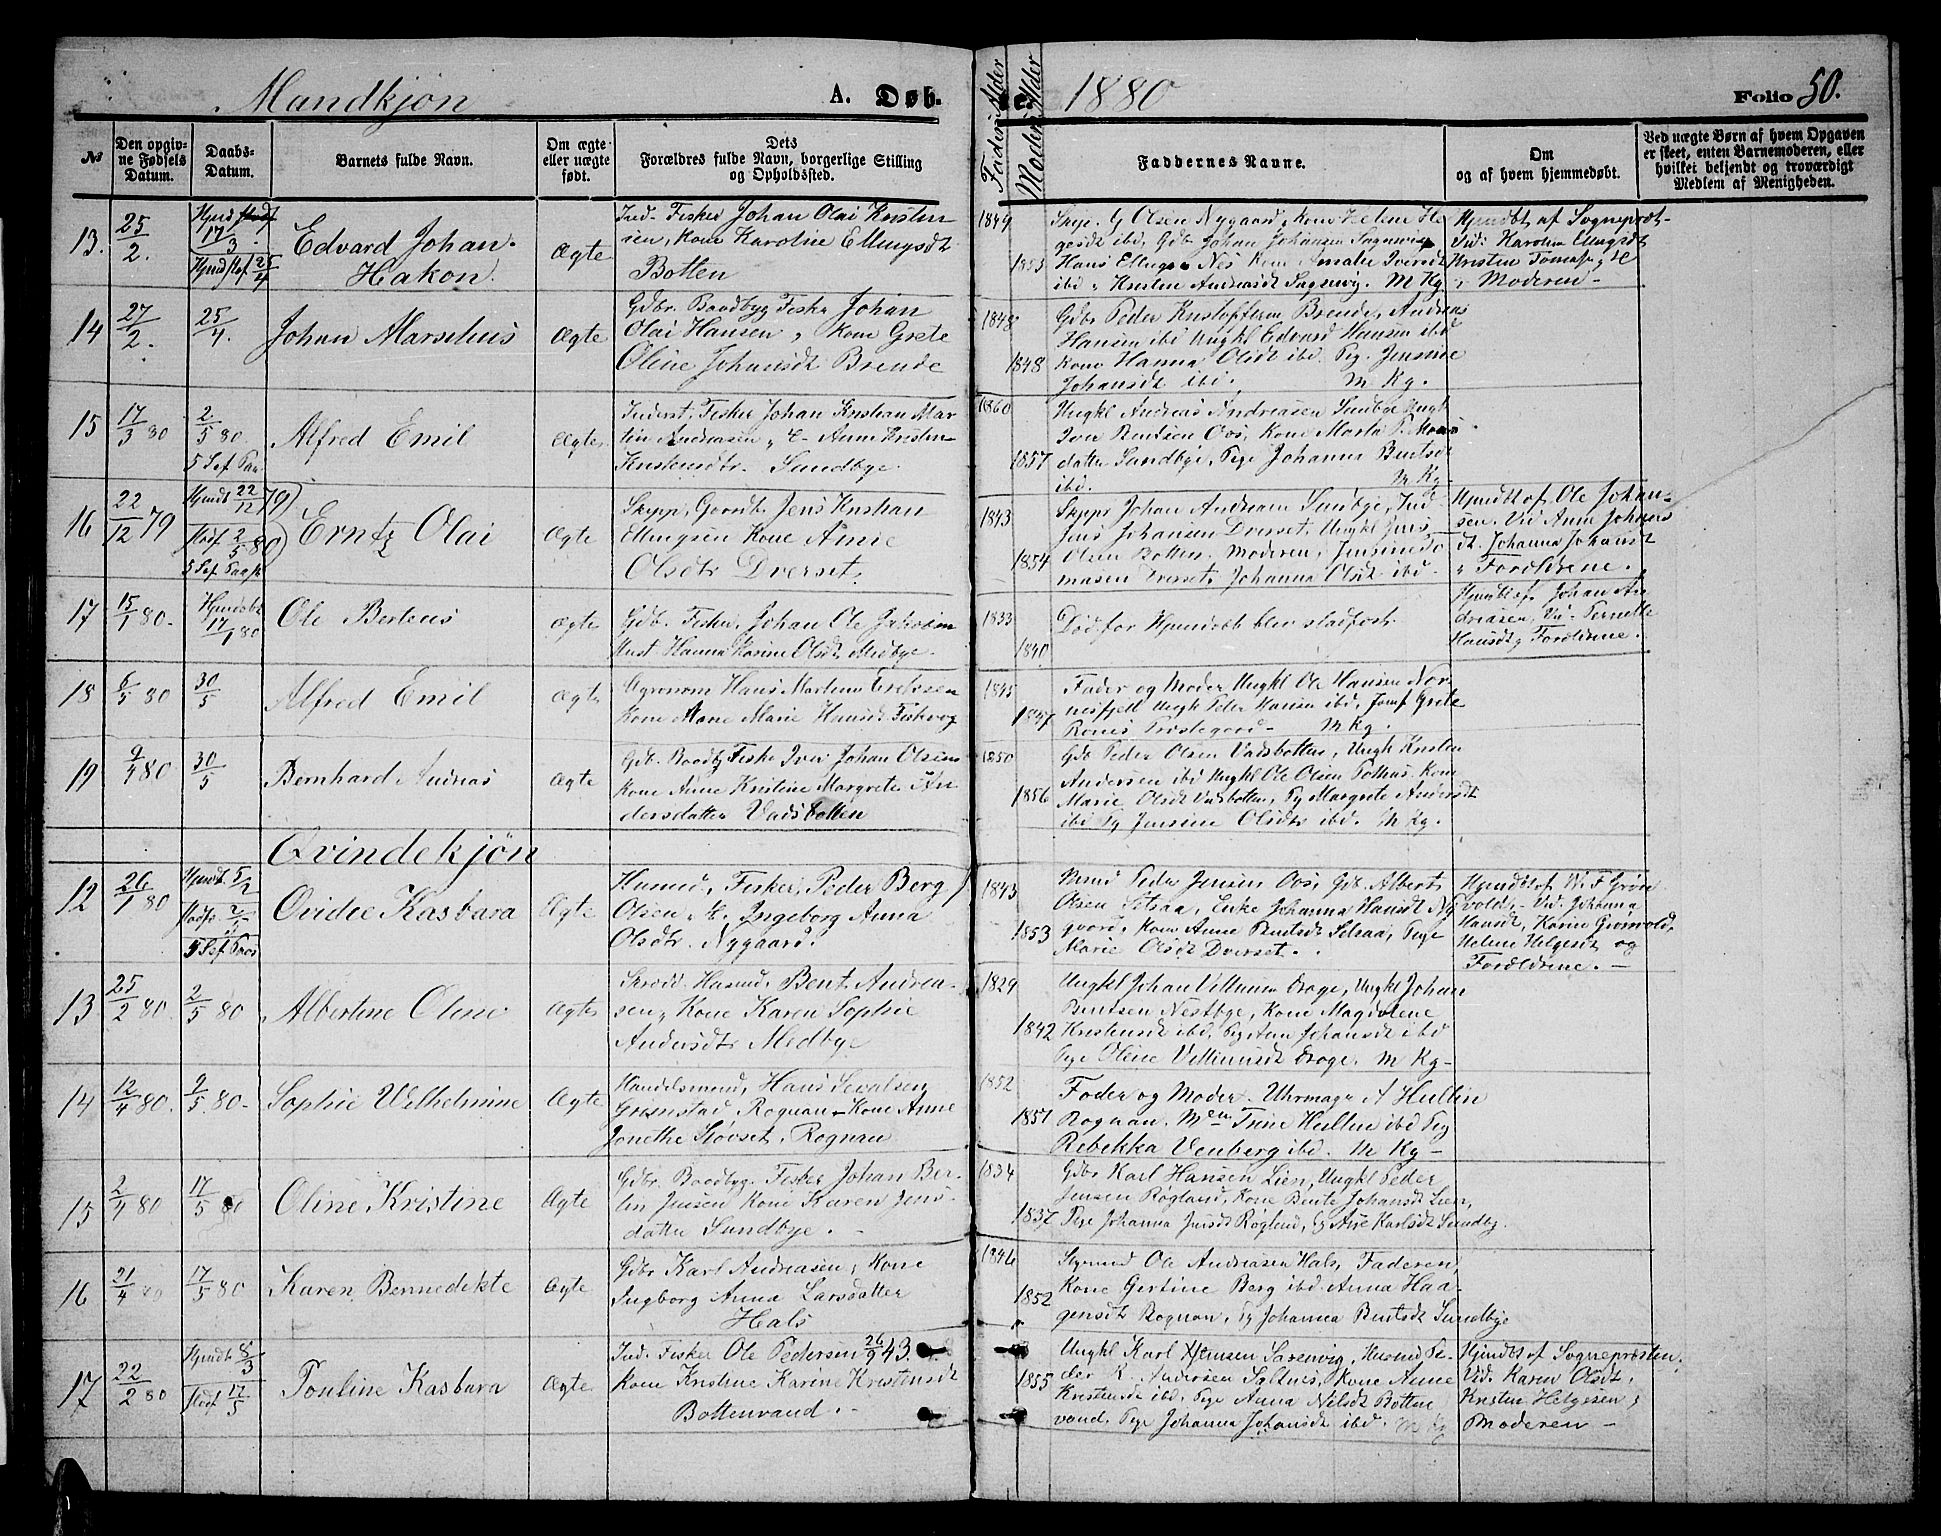 Mandkjøn A. Døb- te. 1880 Folio 50.
Fader Alder
Moder Alder
No
Den opgiv-
ne Fødsels
Datum.
Daabs-
Datum.
Barnets fulde Navn.
Om ægte
eller uægte
født.
Dets
Forældres fulde Navn, borgerlige Stilling
og Opholdssted.
Faddernes Navne.
Om
og af hvem hjemmedøbt.
Ved uægte Børn af hvem Opgaven
er skeet, enten Barnemoderen, eller
hvilket bekjendt og troværdigt
Medlem af Menigheden.
13. 25/2. 17/3 25/4
Edvard Johan
Hakon.
Ægte
Ind. Fisker Johan Olai Kristen
sen, Kone Karoline Ellingsdt
Botten
1849
1853
G Olsen Nygaard, Kone Helene He
gesdt ibd, Gdb Johan Johansen Sagnevig
Hans Ellings Nes Kone Amalie Iversdt
ibd, Kristine Andreasdt Sagnevig. M Kg
Hjmdbt af Sogneprst-
Vid: Karolin Ellingsdt
Kristen
Moderen -
14 27/2. 25/4.
Johan Marselius
Ægte
Gdbr. Baadbyg Fisker Johan
Olai Hansen, Kone Grete
Oline Johansdt Brende
1848
1848
Gdbr Peder Kristoffersen Brende, Andreas
Hansen ibd Ungkl Edvard Hansen ibd
Kone Hanna Olsdt ibd. Pig. Jensine
Johansdt ibd. M Kg.
15 17/3 80 2/5 80
5 Sef Paa
Alfred Emil
Ægte
Inderst, Fisker Johan Kristian Mar
tin Andreasen, Anne Kristin
Kristensdtr. Sundbye.
1860
1857
Ungkl Andreas Andreasen Sundbye Ungk
Iver Bentsen Oos, Kone Marta
datter Sundbye, Pige Johanna Bentsdt
ibd. M Kg-
16 22/12 79 Hjmdt 22/12 79
Stadf 2/5 80
5 Sef Paasp
Erntz Olai
Ægte
Skypp, Gaardb. Jens Kristian
Ellingsen Kone Anne
Olsdtr Dverset.
1843
1854
Skyps Johan Andreasen Sundbye, Ind
Jens Johansen Dverset, Ungkl Jens
Olsen Botten. Moderen, Jensine To
masen Dverset, Johanna Olsdt ibd.
Hjmdbt af. Ole Johan-
sen. Vid Anne Johans
dt. Johanna Johansdt
Forældrene.
17 15/1 80. Hjmdbt
17/1 80
Ole Berteus
Ægte
Gdb. Fisker, Johan Ole Jakobsen
Hust Hanna Karine Olsdt, Medbye.
1833
1840
Død før Hjmdøb blev stadfæst.
Hjmdbt af Johan An
dreasen, Vi- Pernelle
Hansdt, Forældrene.
18 6/5 80 30/5
Alfred Emil
Ægte
Agronom Hans Martinus
Kone Marie Hansdt Fiskvog
1845
1847
Fader og Moder Ungkl Ole Hansen Nor
nesfjell Ungk Peder Hansen ibd, Jomf Grete
Prestegaard - M Kg.
19 9/4 80 30/5
Bernhard Andreas
Ægte
Gdb. Baadby Fiske Iver Johan Olsen
Kone Anne Kristine Margrete An
dersdatter Vadsbotten
1850
1856
Gdb Peder Olsen Vadsbotten, Ungk Kristen
Andersen ibd Ungkl Ole Olsen Kone
Marie Olsdt Vadsbotten, Pg Margrete Andersdt
ibd Pg Jensine Olsdtr ibd. M Kg.
Qvindekjøn
12 26/1 80 Hjmdt. 5/2
Stadf. 2/5
5 Sef Paas
Ovidee Kasbara
Ægte
Husmd, Fisker, Peder Berg
Olsen, K. Ingeborg Anna
Olsdtr. Nygaard.
1843
1853
Peder Jensen Oos, Gdb. Albert
Olsen Setsaa, Enke Johanna Hansdt Ny
gaard, Kone Anne Bentsdt Setsaa, Pige
Marie Olsdt Dverset.
Hjmdbt af N: F Grøn
vold, - Vid. Johanna
Hansdt, Karin Grønvold,
Helene Helgesdt og
Forældrene. -
13 25/2 80. 2/5 80
Albertine Oline
Ægte
Skrædd. Husmd. Bent Andrea-
sen, Kone Karen Sophie
Andersdtr Medbye
1829
1842
Ungkl Johan Villumsen Drage, Ungkl Johan
Bentsen Nestbye, Kone Magdalene
Kristensdt ibd, Pig Johansdt ibd
Pige Oline Villumsdt Drage. M Kg-
14 12/4 80. 9/5. 80-
Sophie Wilhelmine
Ægte
Handelsmand, Hans Sevalsen
Grimstad Rognan, Kone Anne
Jonethe Støvset, Rognan
1852
1851
Fader og Moder. Uhrmagr A Hullin
Rognan. Men Trine Hullin ibd Pig
Rebekka Venberg ibd. M Kg -
15 2/4 80 17/5 80
Oline Kristine
Ægte
Gdbr. Baadbyg. Fisker Johan Ber-
tin Jensen Kone Karen Jens-
datter Sundbye. -
1834
1837
Gdbr Karl Hansen Lien, Ungkl Peder
Jensen Røgland, Kone Bente Johansdt Lien,
Pige Johanna Jensdt Røglund, Pg Ane Karlsdt Sundby.
16 21/4 80 17/5 80
Karen Bennedikte
Ægte
Gdbr Karl Andreasen, Kone
Ingborg Anna Larsdatter
Hals
1846
1852
Styrmd Ole Andreasen Hals, Faderen,
Kone Gertine Berg ibd Anna Haa-
gensdt Rognan, Pg Johanna Bentsdt Sundbye
17 22/2 80 Hjmdt. 8/3
Stadf 17/5
Pauline Kasbara
Ægte
Ind. Fisker Ole Pedersen 26/9 43.
Kone Kristine Karine Kristensdt
Bottenvand. -
1855
Ungkl Karl Hensen Saxenvig, Husmd Pe-
der R. Andersen Saltnes, Kone Anne
Kristensdt ibd, Pige Anna Nilsdt Botten
vand, Pige Johanna Johansdt ibd. M Kg
Hjmdbt af Sognepræsten.
Vid. Karen Olsdt,
Kristen Helgesen,
Moderen -